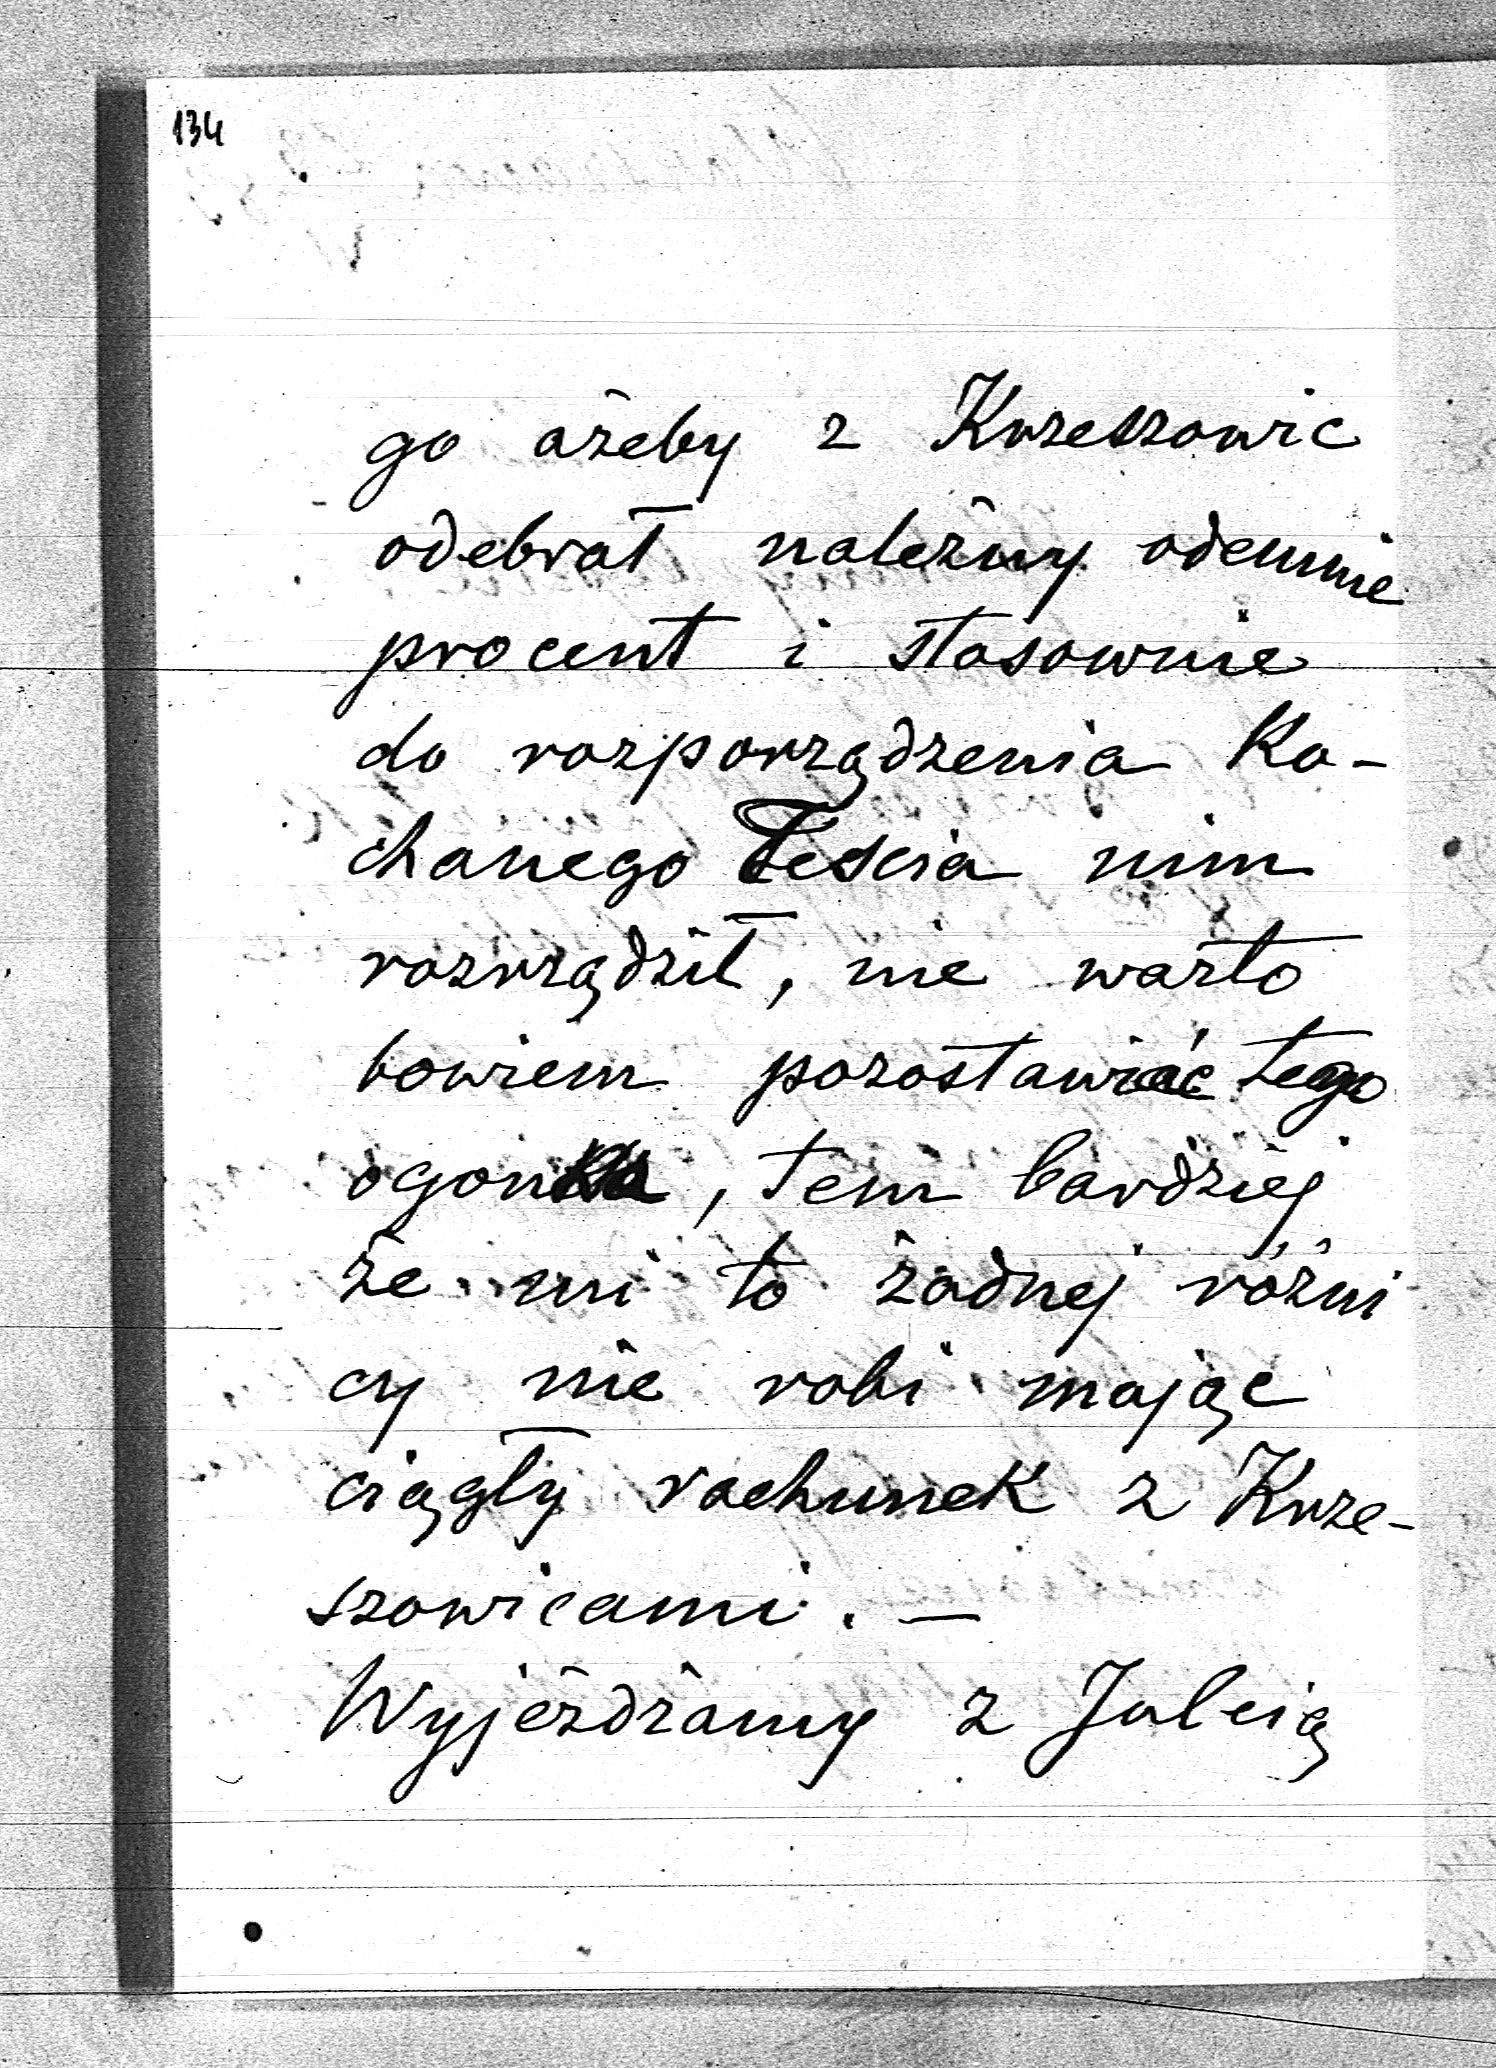 134
go ażeby z Krzeszowic
odebrał należny odemnie
procent i stosownie
do rozporządzenia Ko-
chanego Teścia nim
rozrządził, nie warto
bowiem pozostawiać tego
ogonka, tem bardziej
że mi to żadnej różni
cy nie robi mając
ciągły rachunek z Krze-
szowicami. —
Wyjeżdżamy z Julcią